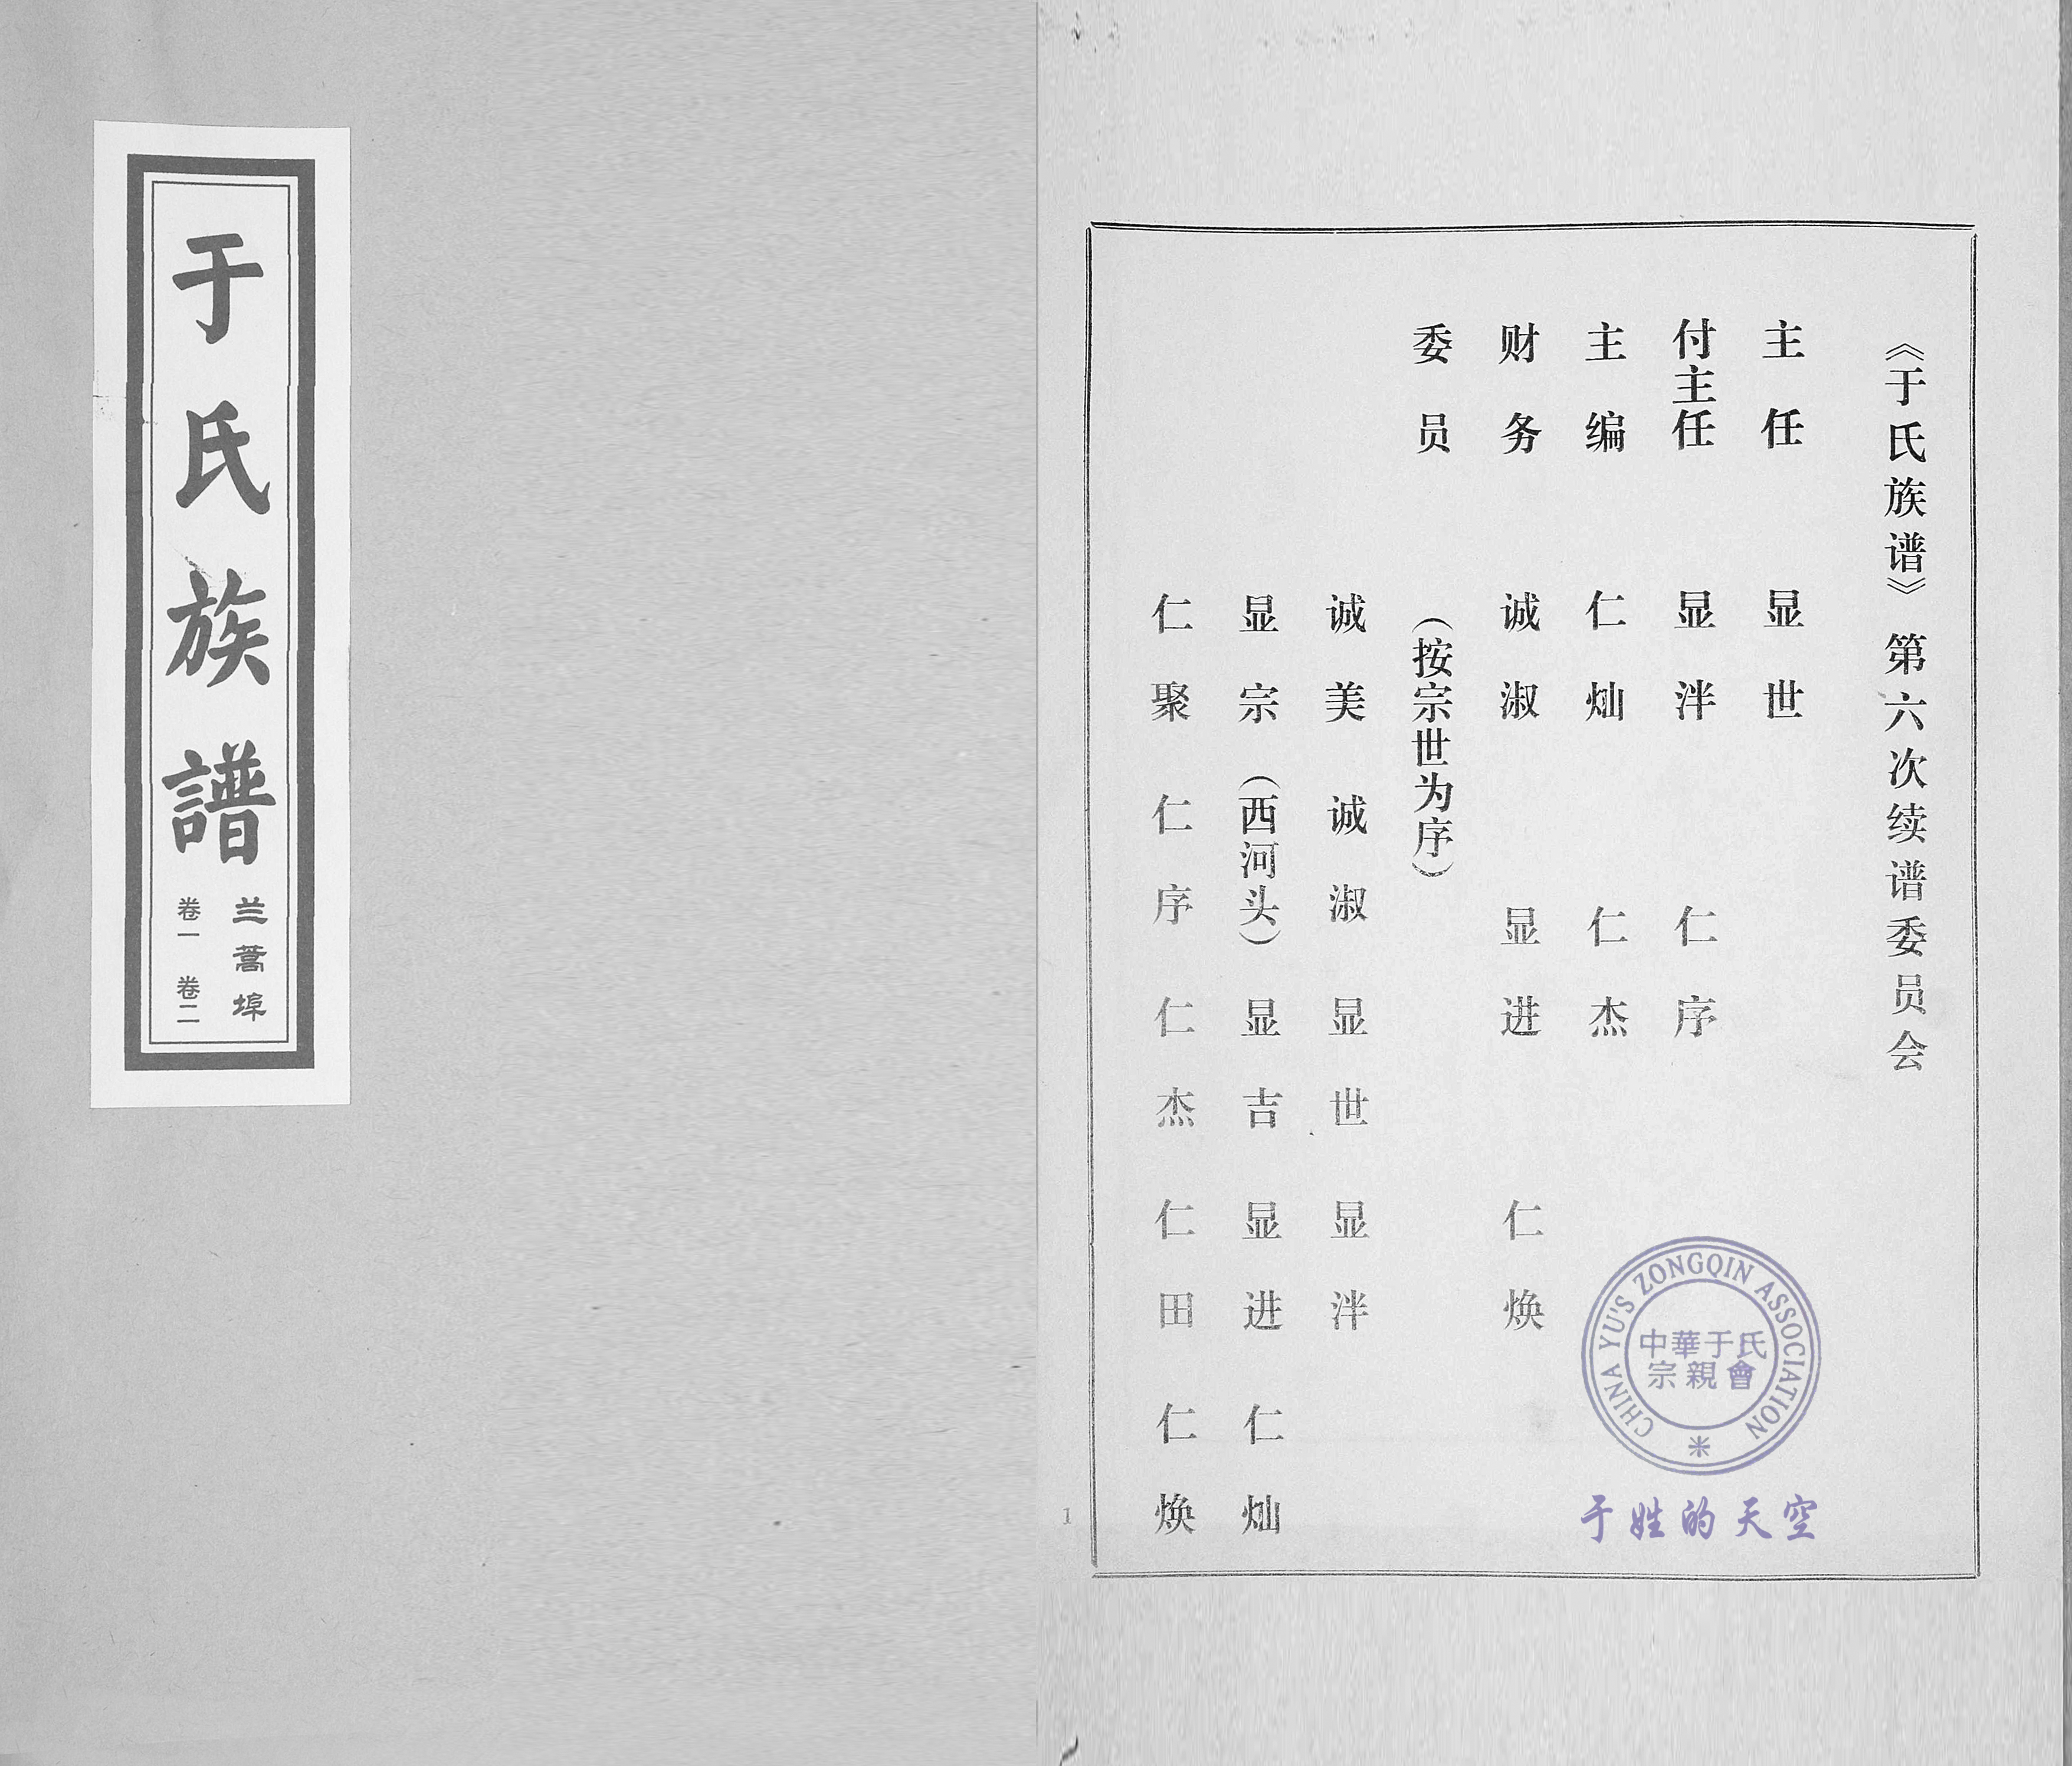 于氏族譜
兰蒿埠
卷一 卷二
《于氏族谱》第六次续谱委员会
主任 显世
付主任 显泮 仁序
主编 仁灿 仁杰
财务 诚淑 显进 仁焕
委员 (按宗世为序)
诚美 诚淑 显世 显泮
显宗(西河头) 显吉 显进 仁灿
仁聚 仁序 仁杰 仁田 仁焕
CHINA YU'S ZONGQIN ASSOCIATION
中華于氏
宗親會
于姓的天空
1